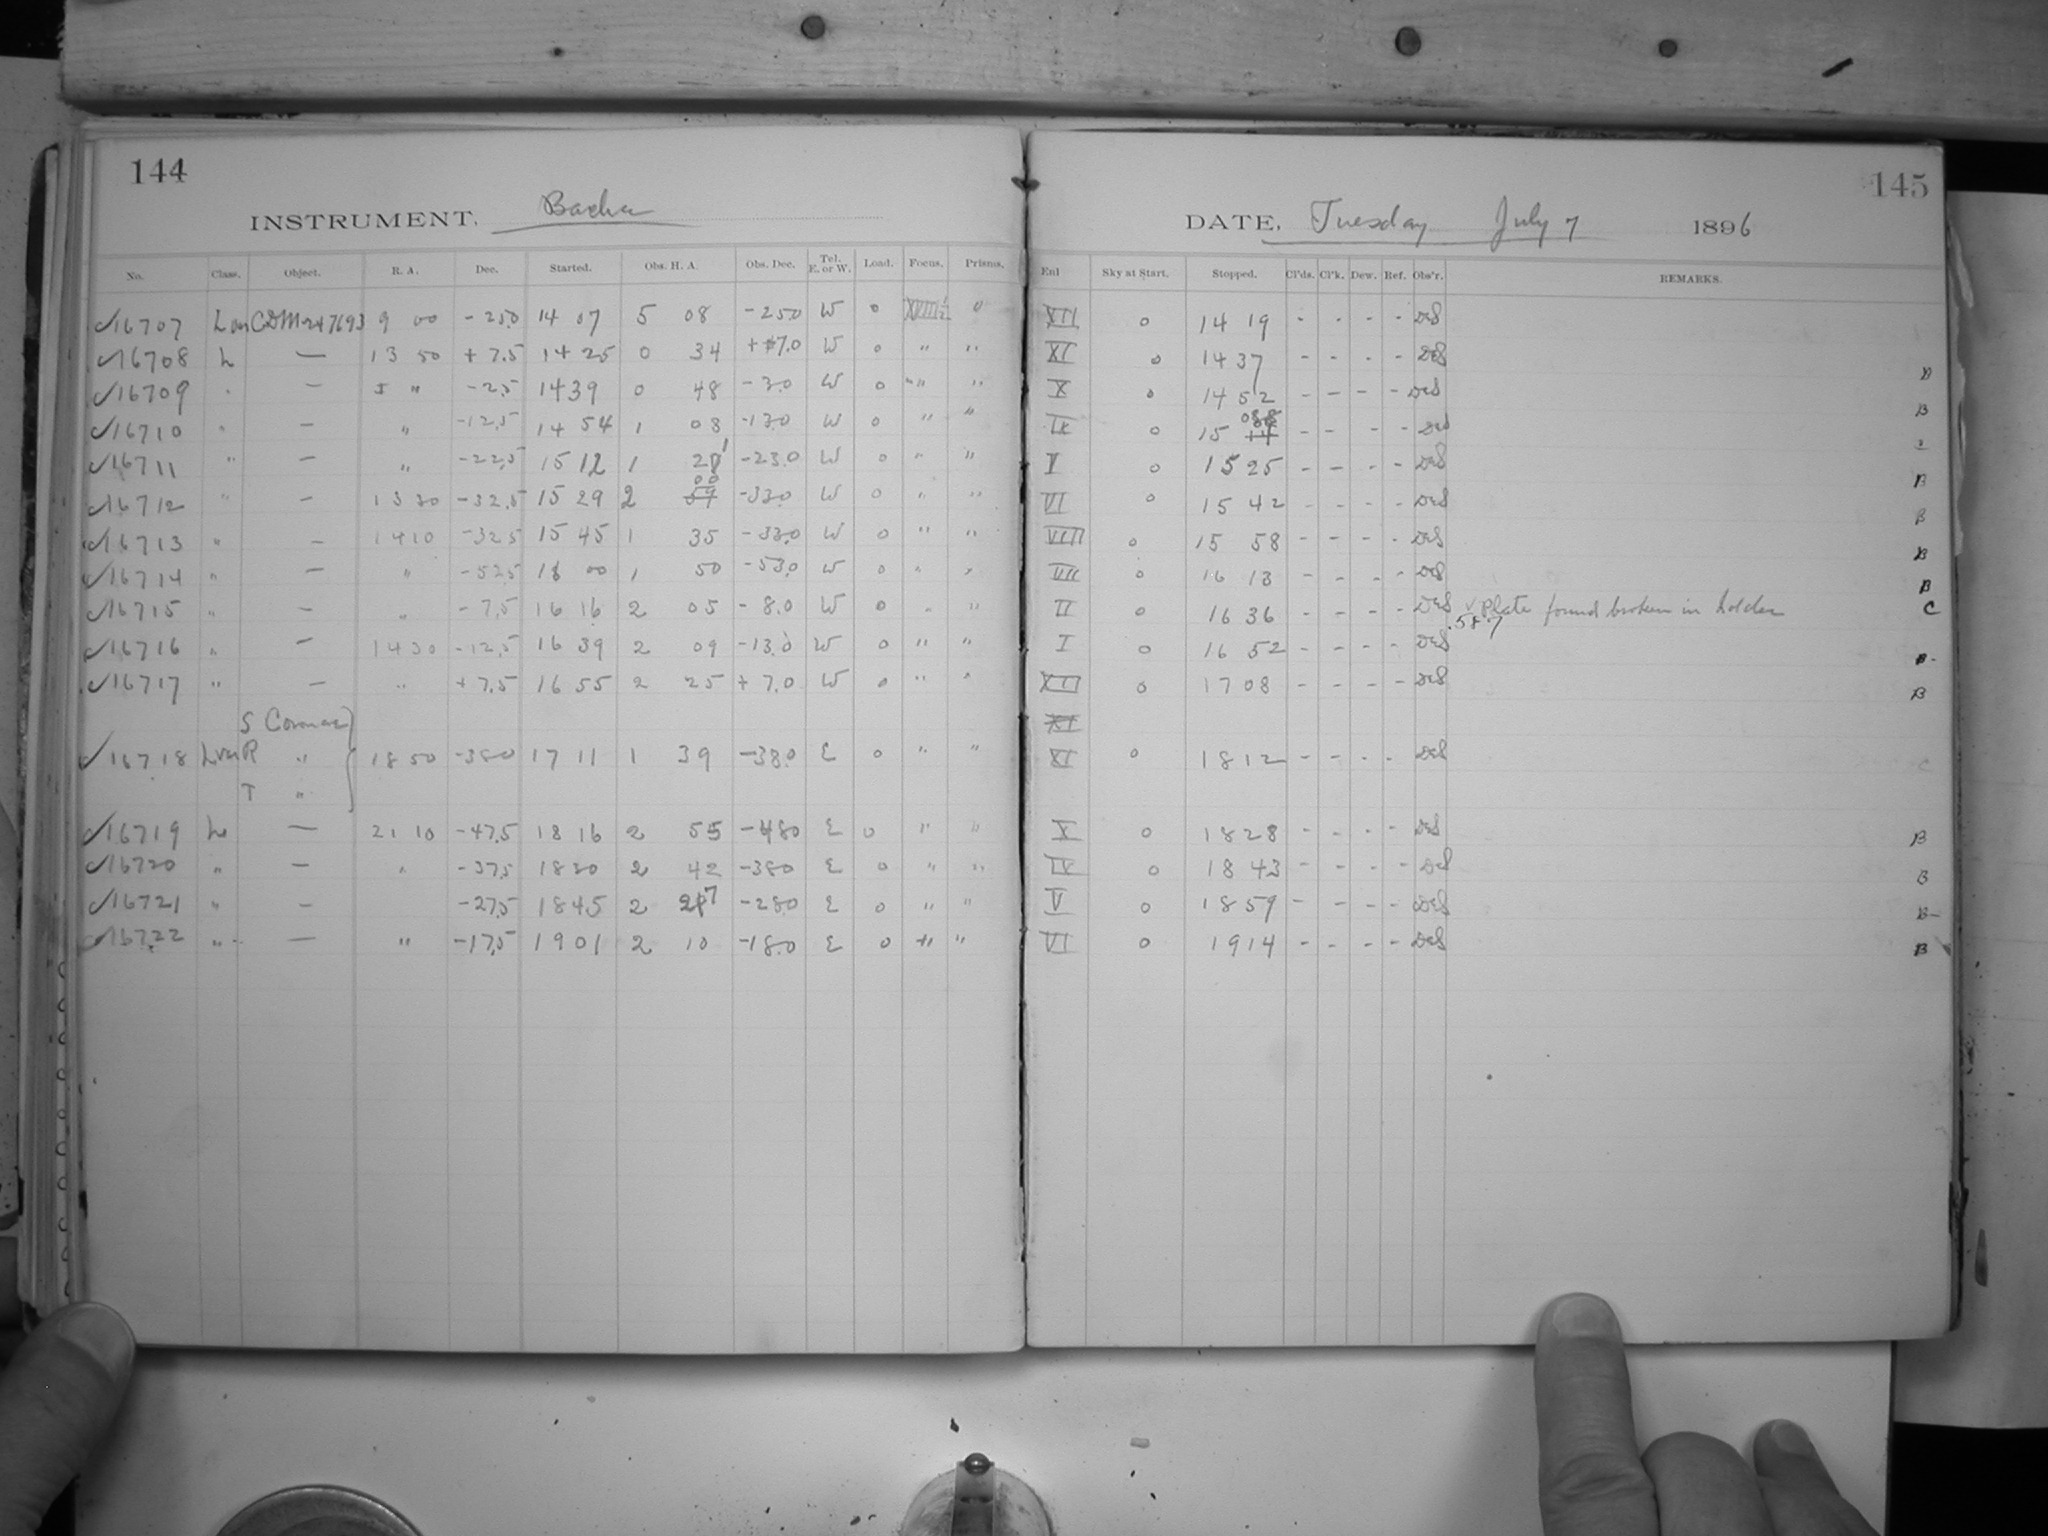 144
INSTRUMENT. Bache
No. Class. Object. R. A. Dec. Started. Obs. H. A. Obs. Dec. Tel. E. or W. Load. Focus. Prisms.
✓16707 9 00 -25.0 14 07 5 08 -25.0 W 0 " 0
✓16708 L — 13 50 + 7.5 14 25 0 34 +7.0 W 0 " "
✓16709 " — " -2.5 14 39 0 48 -3.0 W 0 " "
✓16710 " — " -12.5 14 54 1 08 -13.0 W 0 " "
✓16711 " — " -22.5 15 12 1 21 -23.0 W 0 " "
✓16712 " — 13 30 -32.5 15 29 2 00 -33.0 W 0 " "
✓16713 " — 14 10 -32.5 15 45 1 35 -33.0 W 0 " "
✓16714 " — " -52.5 16 00 1 50 -53.0 W 0 " "
✓16715 " — " -7.5 16 16 2 05 -8.0 W 0 " "
✓16716 " — 14 30 -12.5 16 39 2 09 -13.0 W 0 " "
✓16717 " — " +7.5 16 55 2 25 + 7.0 W 0 " "
S Coronae
✓16718 L var R " 18 50 -38.0 17 11 1 39 -38.0 E 0 " "
T "
✓16719 L — 21 10 -47.5 18 16 2 55 -48.0 E 0 " "
✓16720 " — " -37.5 18 30 2 42 -38.0 E 0 " "
✓16721 " — -27.5 18 45 2 27 -28.0 E 0 " "
✓16722 " — " -17.5 19 01 2 10 -18.0 E 0 " "
145
DATE, Tuesday July 7 1896
Enl Sky at Start. Stopped. Cl'ds. Cl'k. Dew. Ref. Obs'r. REMARKS.
XII 0 14 19 - - - - DeS
XI 0 14 37 - - - - DeS B
X 0 14 52 - - - - DeS B
IX 0 15 08 - - - - DeS
V 0 15 25 - - - - DeS B
VI 0 15 42 - - - - DeS B
VIII 0 15 58 - - - - DeS B
VII 0 16 13 - - - - DeS B
II 0 16 36 - - - - DeS ✓ Plate found broken in holder C
I 0 16 52 - - - - DeS B
XII 0 17 08 - - - - DeS B
XI
XI 0 18 12 - - - - DeS C
X 0 18 28 - - - - DeS B
IX 0 18 43 - - - - DeS B
V 0 18 59 - - - - DeS B
VI 0 19 14 - - - - DeS B